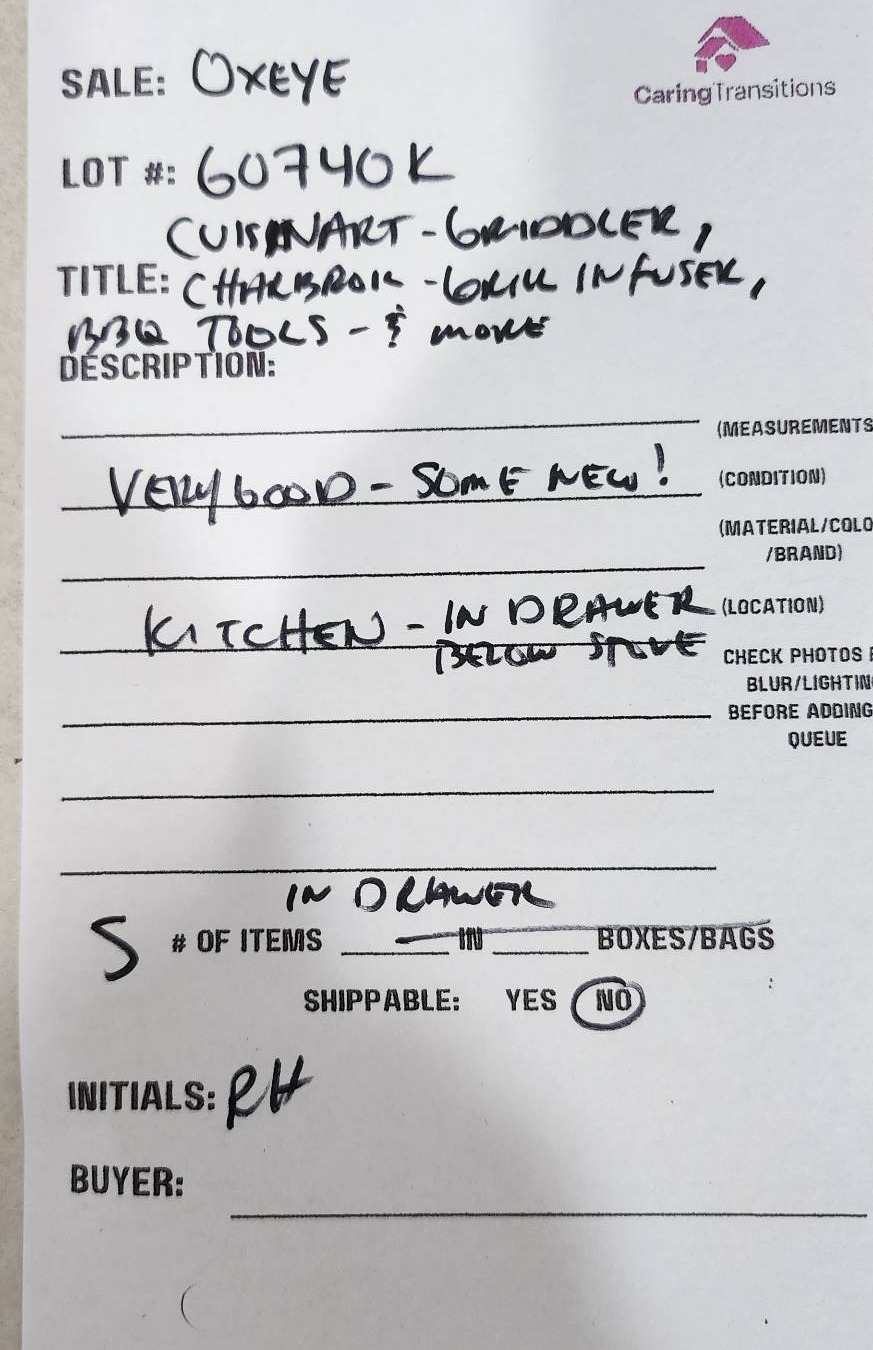 SALE: OXEYE
CaringTransitions
LOT #: 60740K
CUISINART - GRIDDLER,
TITLE: CHARBROIL - GRILL INFUSER,
BBQ TOOLS - & MORE
DESCRIPTION:
(MEASUREMENTS
VERY GOOD - SOME NEW! (CONDITION)
(MATERIAL/COLO
/BRAND)
KITCHEN - IN DRAWER (LOCATION)
BELOW STOVE
CHECK PHOTOS F
BLUR/LIGHTIN
BEFORE ADDING
QUEUE
IN DRAWER
5 # OF ITEMS IN BOXES/BAGS
SHIPPABLE: YES NO
INITIALS: RH
BUYER: